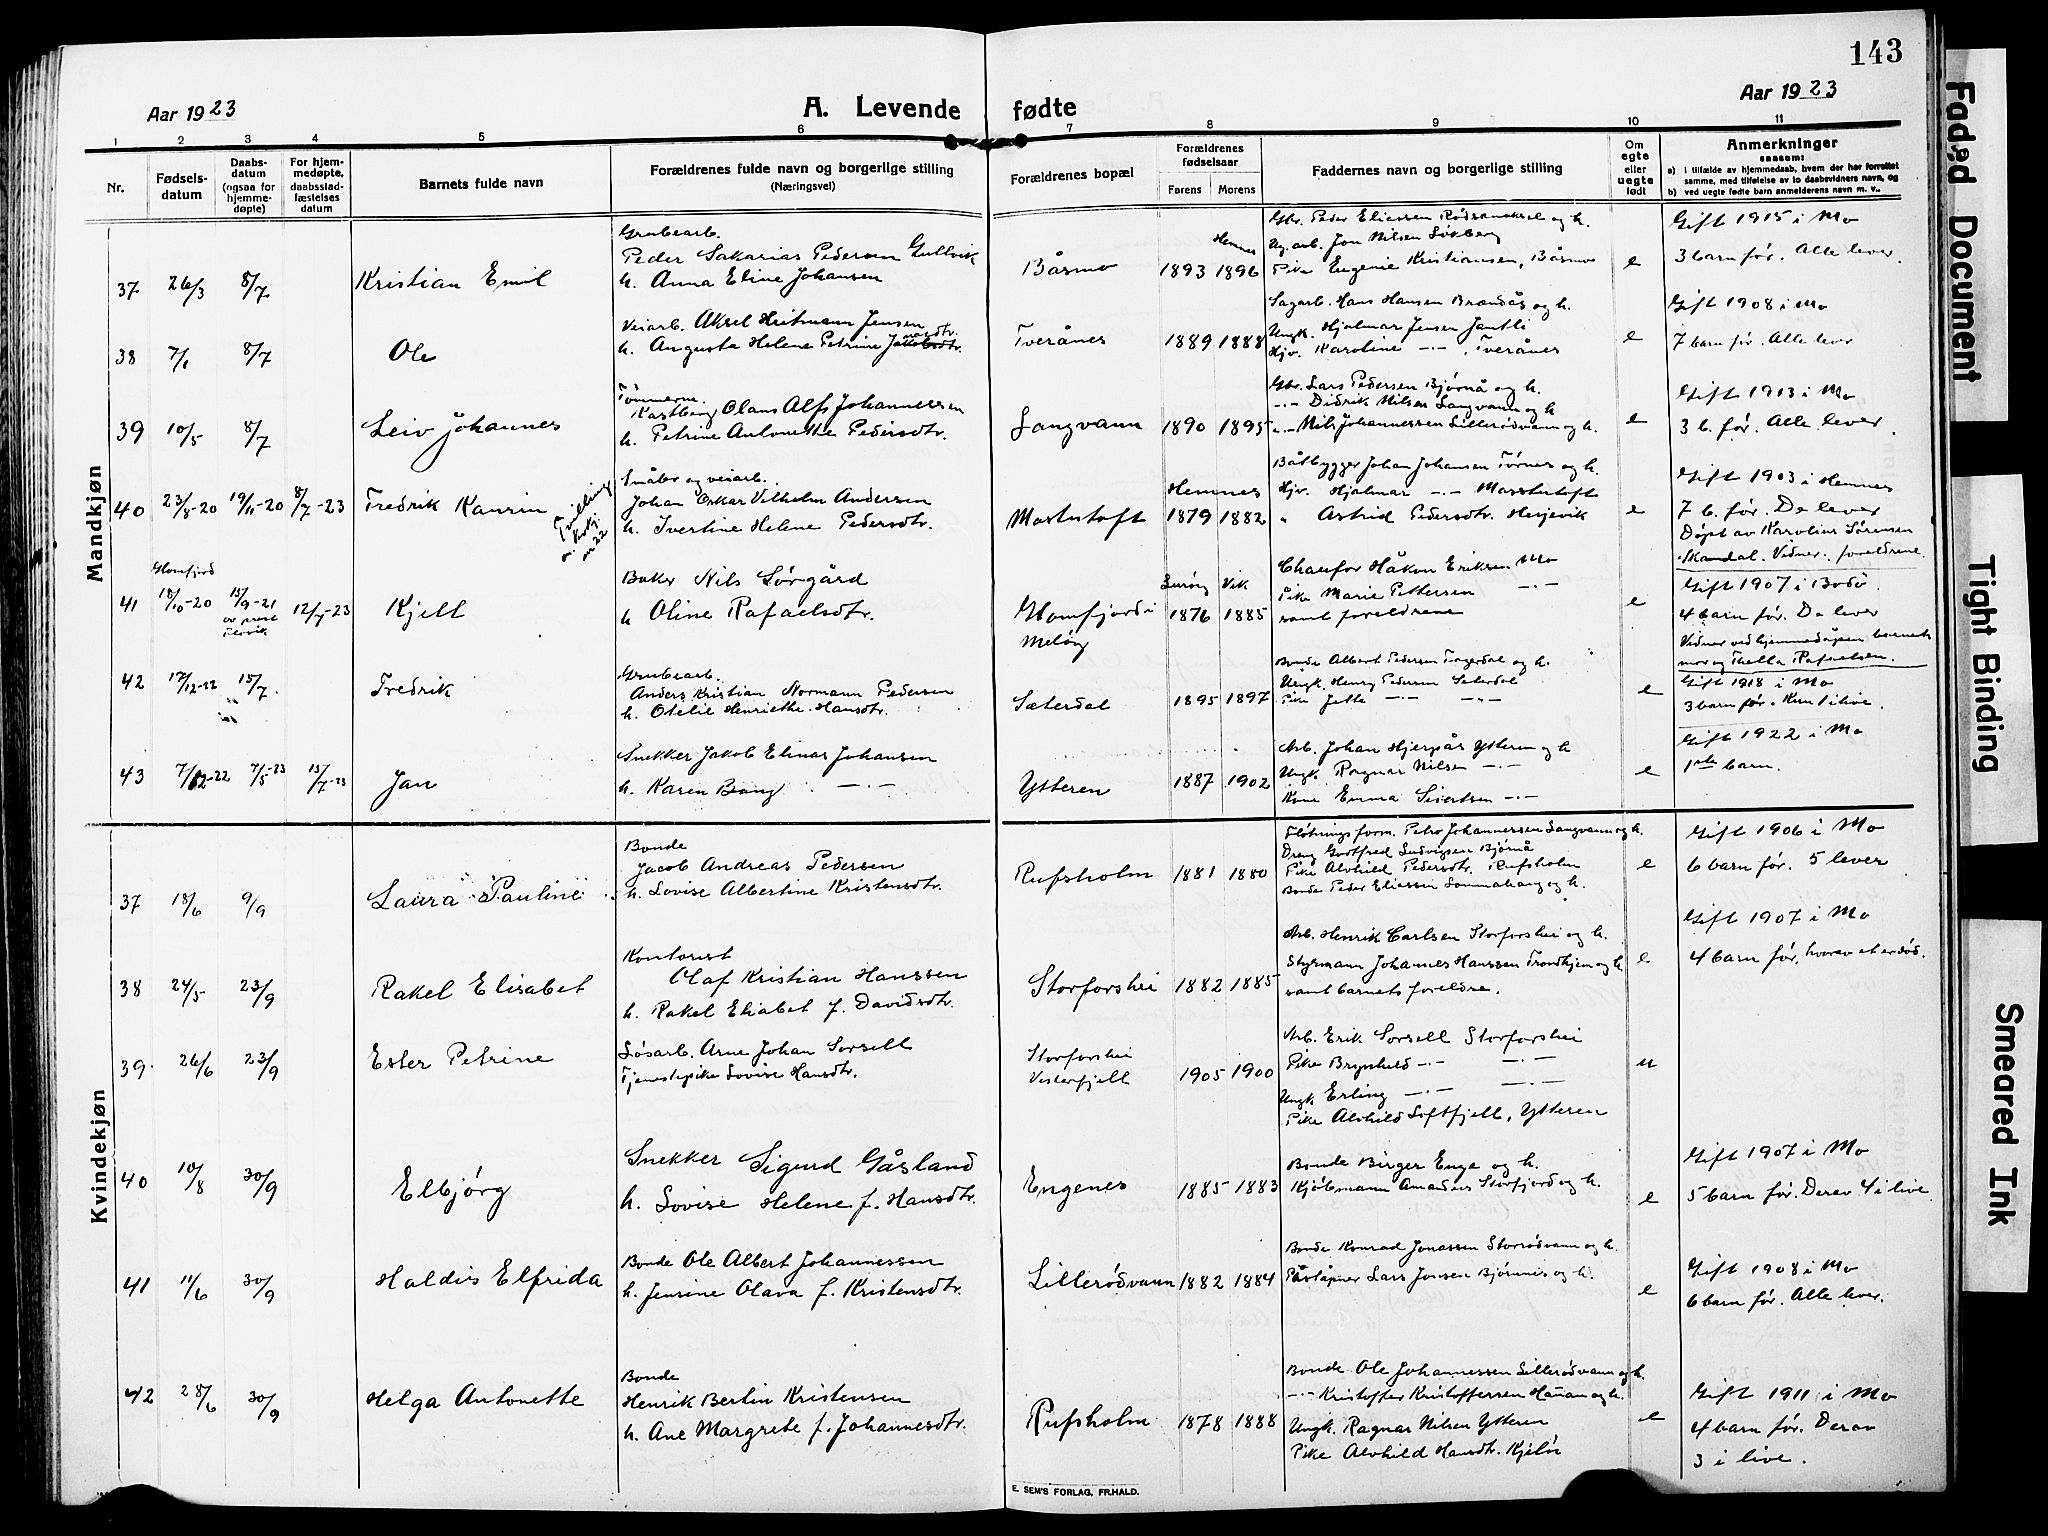 143
Aar 1923
A. Levende fødte
Aar 1923
1 2 3 4 5 6 7 8 9 10 11
Nr.
Fødsels-
datum
Daabs-
datum
(ogsaa for
hjemme-
døpte)
For hjem-
medøpte,
daabsstad-
fæstelses
datum
Barnets fulde navn
Forældrenes fulde navn og borgerlige stilling
(Næringsvei)
Forældrenes bopæl
Forældrenes
fødselsaar
Farens Morens
Faddernes navn og borgerlige stilling
Om
egte
eller
uegte
født
Anmerkninger
saasom:
a) i tilfælde av hjemmedaab, hvem der har forrettet
samme, med tilføielse av to daabsvidners navn, og
b) ved uegte fødte barn anmelderens navn m. v..
Mandkjøn
37 26/3 8/7 Kristian Emil
Grubearb.
Peder Sakarias Pedersen Gullvik
h. Anna Eline Johansen
Båsmo
Hemnes
1893 1896
Gbr. Peder Eliassen Rødsandaksel og h.
Ug.arb. Jon Nilsen Søkberg
Pike Eugenie Kristiansen, Båsmo
e
Gift 1915 i Mo
3 barn før. Alle lever.
38 7/1 8/7 Ole
Veiarb. Aksel Hritmann Jensen
h. Augusta Helene Petrine
Tverånes 1889 1888
Sagarb. Hans Hansen Brændås og h.
Ungk. Hjalmar Jensen Jamtli
Hjv. Karoline -"- , Tverånes
e
Gift 1908 i Mo
7 barn før. Alle lever
39 10/5 8/7 Leiv Johannes
Tømmerm.
Kastberg Olaus Alfs Johannessen
h. Petrine Antonette Pedersdtr.
Langvann 1890 1895
Gbr. Lars Pedersen Bjørnå og h.
-"- Didrik Nilsen Langvann og h
-"- Nils Johannessen Lillerødvann og h.
e
Gift 1913 i Mo
3 b. før. Alle lever.
40 23/8-20 19/11-20 8/7-23 Fredrik Kaurin
Tvilling
m. Kvkj.
nr 22
Småbr og veiarb.
Johan Oskar Vilhelm Andersen
h. Ivertine Helene Pedersdtr.
Mastutoft
Hemnes
1879 1882
Båtbygger Johan Johansen Tørnes og h.
Hjv. Hjalmar -"- Mastutoft
" Astrid Pedersdtr. Herjevik
e
Gift 1903 i Hemnes
7 b. før. De lever
Døpt av Karolius Sørensen
Skandal. Vidner: foreldrene
41
Glomfjord
18/10-20 15/9-21
av prest
12/7-23 Kjell
Baker Nils Sørgård
h Oline Rafaelsdtr.
Glomfjord i
Meløy
Lurøy Vik
1876 1885
Chaufør Håkon Eriksen Mo
Pike Marie Pettersen -"-
samt foreldrene
e
Gift 1907 i Bodø.
4 barn før. De lever
Vidner ved hjemmedåpen barnets
mor og Thella Rafaelsen.
42 17/12-22 15/7. Fredrik
Grubearb.
Anders Kristian Normann Pedersen
h. Otelie Henriette Hansdtr.
Sæterdal 1895 1897
Bonde Albert Pedersen Fagerdal og h.
Ungk. Henry Pedersen Seterdal
Pike Jette -"- -"-
e
Gift 1918 i Mo
3 barn før. Kun 1 i live.
43 7/12-22 7/5-23 15/7-23 Jan
Snekker Jakob Elinas Johansen
h. Karen Bang -"-
Ytteren 1887 1902
Arb. Johan Hjerpås Ytteren og h
Ungk Ragnar Nilsen -"-
Kone Emma Sivertsen -"-
e
Gift 1922 i Mo
1ste barn.
Kvindekjøn
37 18/6 9/9 Laura Pauline
Bonde
Jacob Andreas Pedersen
h. Lovise Albertine Kristensdtr.
Rufsholm 1881 1880
Fløtnings form. Petro Johannessen Langvann og h.
Dreng Godtfred Ludvigsen Bjørnå
Pike Alvhild Pedersdtr. Rufsholm
Bonde Peder Eliassen Sommahaug og h.
e
Gift 1906 i Mo
6 barn før. 5 lever
38 24/5 23/9 Rakel Elisabet
Kontorist
Olaf Kristian Hanssen
h. Rakel Eliabet f. Davidsdtr.
Storforshei 1882 1885
Arb. Henrik Carlsen Storforshei og h.
Styrmann Johannes Hanssen Trondhjem og h
samt barnets foreldre.
e
Gift 1907 i Mo
4 barn før, hvorav et er død.
39. 26/6 23/9 Ester Petrine
Løsarb. Arne Johan Sorsell
Tjenestepike Lovise Hansdtr.
Storforshei
Vesterfjell
1905 1900
Arb. Erik Sorsell Storforshei
Pike Brynhild -"- -"-
Ungk. Erling -"- -"-
Pike Alvhild Loftfjell, Ytteren
u
40 10/8 30/9 Elbjørg
Snekker Sigurd Gåsland
h. Lovise Helene f. Hansdtr.
Engenes 1885 1883
Bonde Birger Enge og h.
Kjøbmann Amadeus Storfjord og h.
e
Gift 1907 i Mo
5 barn før. Derav 4 i live
41 11/6 30/9 Haldis Elfrida
Bonde Ole Albert Johannessen
h. Jensine Olava f. Kristensdtr.
Lillerødvann 1882 1884
Bonde Konrad Jonassen Storrødvann og h.
Lars Jonsen Bjørnnes og h.
e
Gift 1908 i Mo
6 barn før. Alle lever.
42 28/6 30/9 Helga Antonette
Bonde
Henrik Bertin Kristensen
h. Ane Margrete f. Johannesdtr.
Rufsholm 1878 1888
Bonde Ole Johannessen Lillerødvann og h.
-"- Kristoffer Kristoffersen Hauan og h.
Ungk. Ragnar Nilsen Ytteren
Pike Alvhild Hansdtr. Kjelør
e
Gift 1911 i Mo
4 barn før. Derav
3 i live.
E. SEM'S FORLAG, FR.HALD.
Faded Document
Tight Binding
Smeared Ink